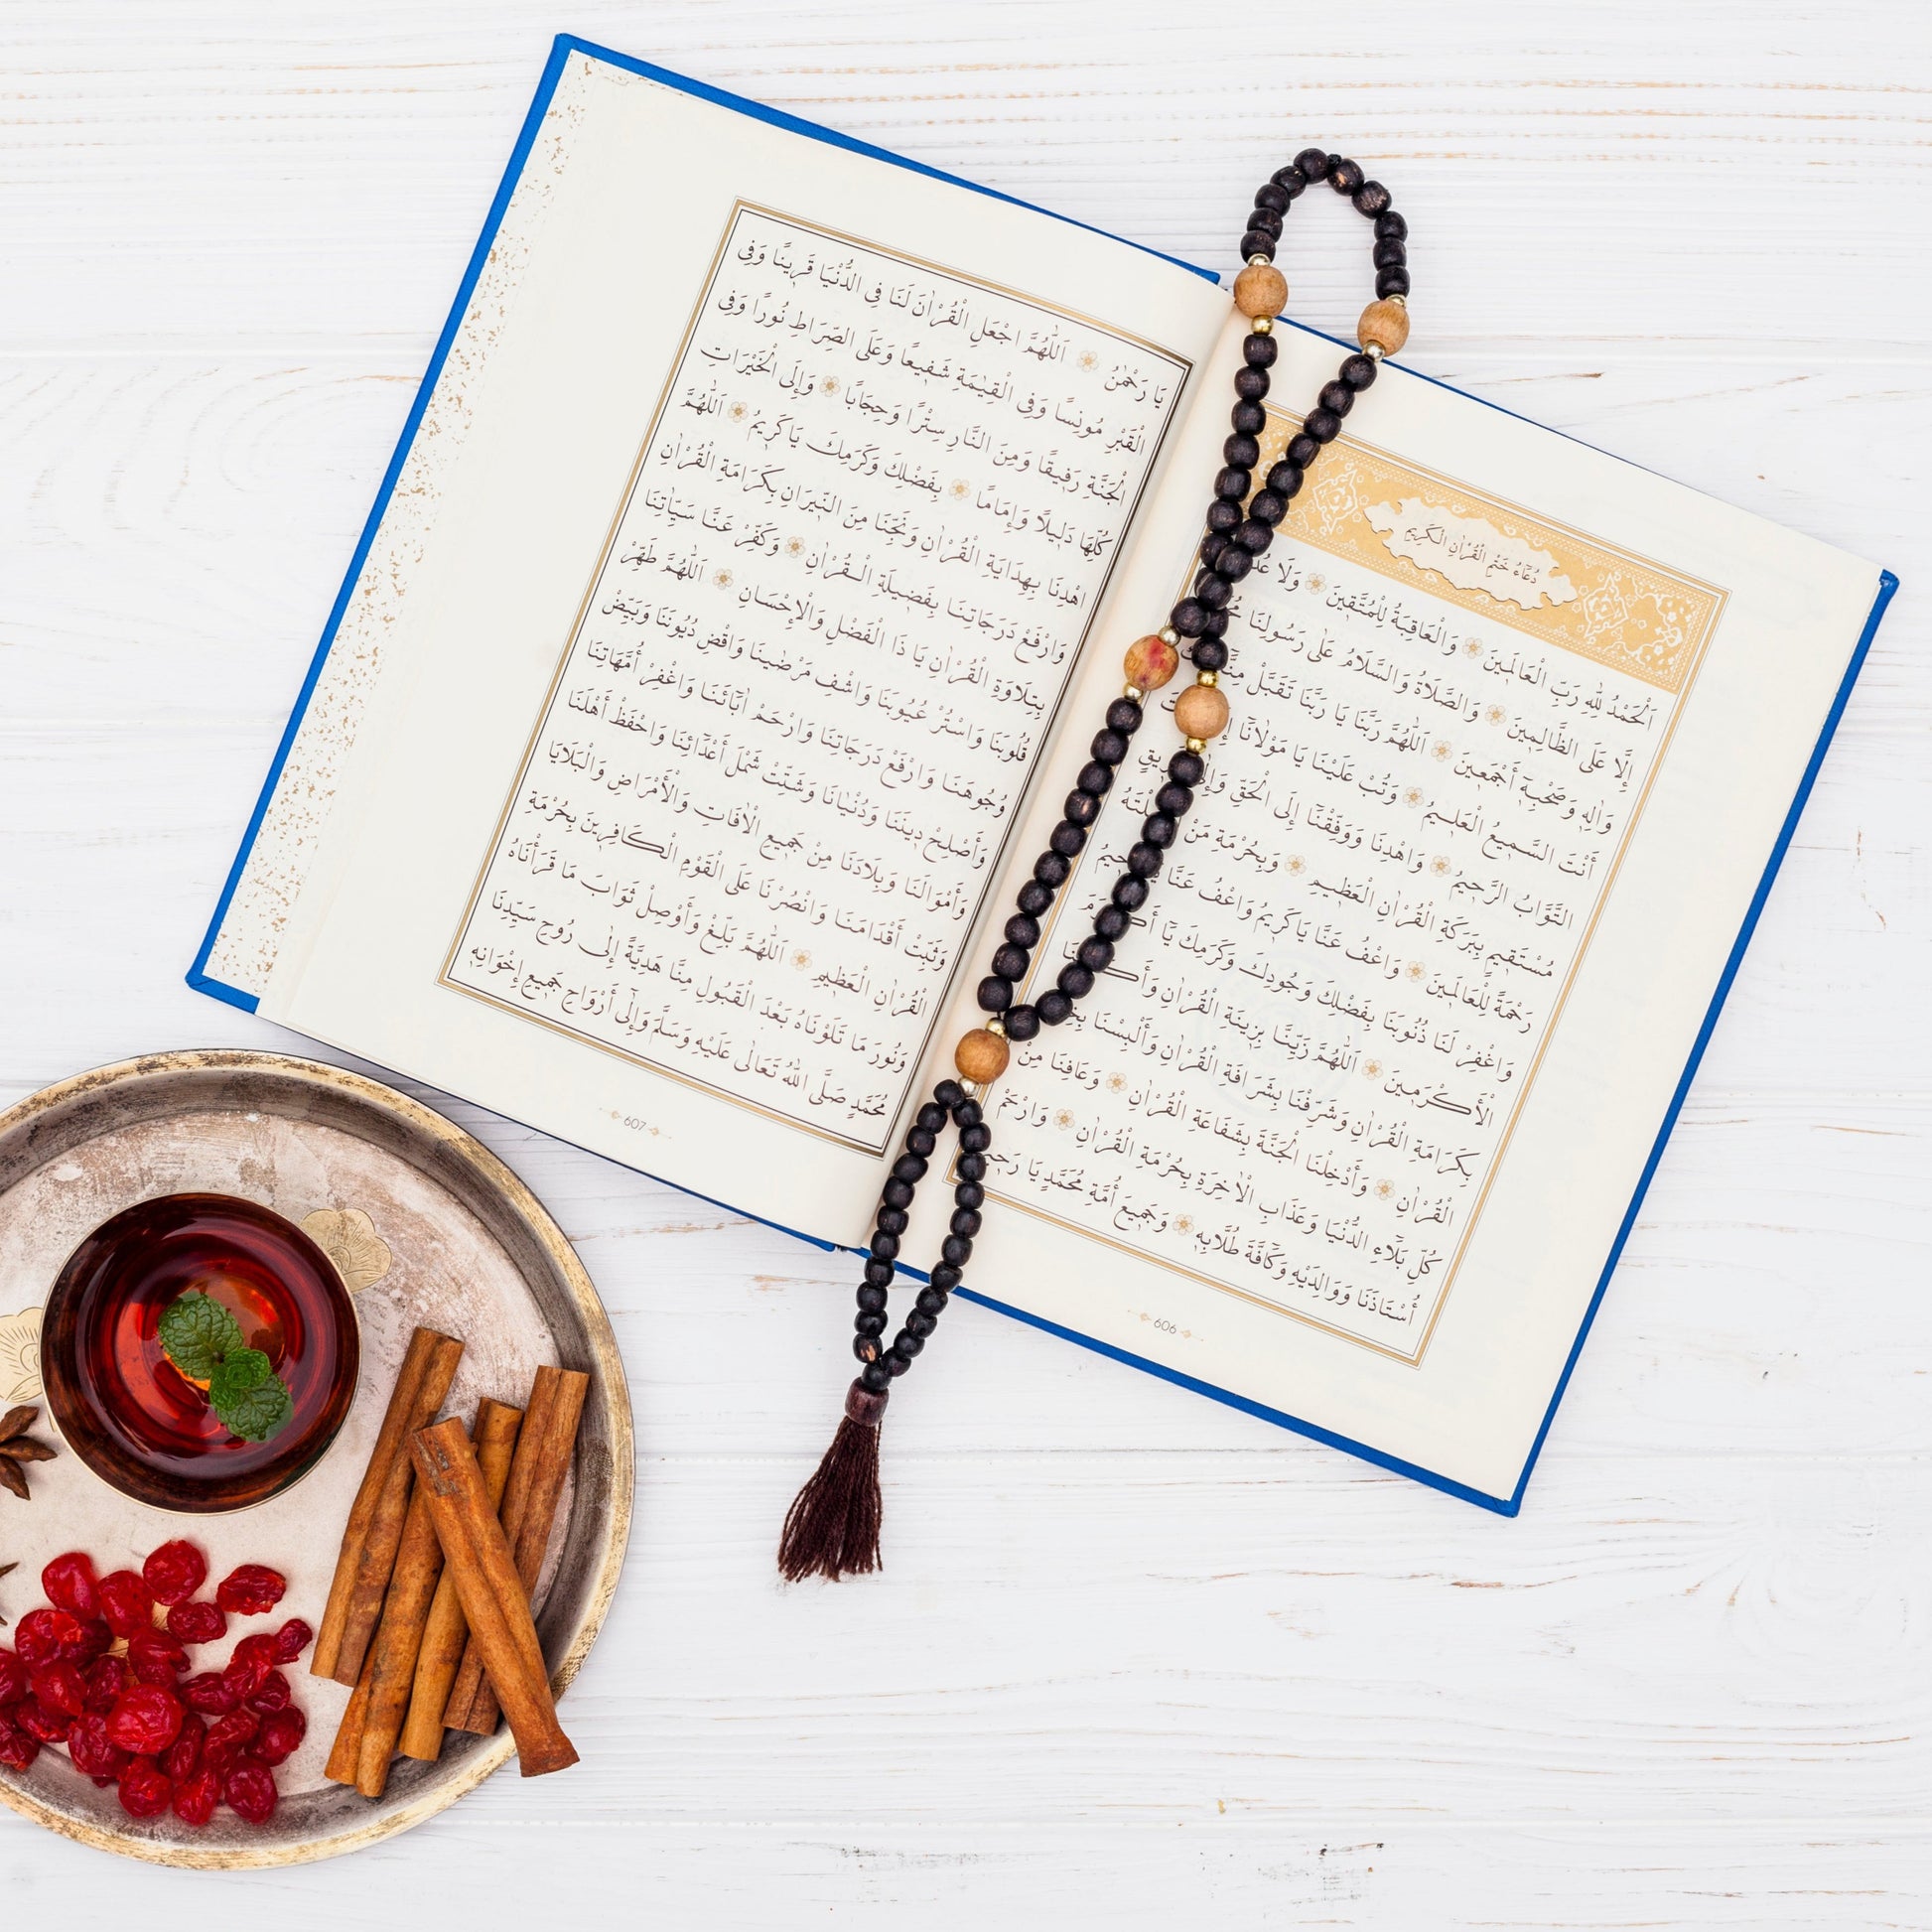 دُعَاءُ خَتْمِ الْقُرْاٰنِ الْكَرِيمِ
اَلْحَمْدُ لِلّٰهِ رَبِّ الْعَالَمِينَ وَالْعَاقِبَةُ لِلْمُتَّقِينَ وَلَا
إِلَّا عَلَى الظَّالِمِينَ وَالصَّلَاةُ وَالسَّلَامُ عَلٰى رَسُولِنَا
وَاٰلِهِ وَصَحْبِهِ أَجْمَعِينَ اَللّٰهُمَّ رَبَّنَا يَا رَبَّنَا تَقَبَّلْ مِنَّا
أَنْتَ السَّمِيعُ الْعَلِيمُ وَتُبْ عَلَيْنَا يَا مَوْلَانَا
التَّوَّابُ الرَّحِيمُ وَاهْدِنَا وَوَفِّقْنَا إِلَى الْحَقِّ
مُسْتَقِيمٍ بِبَرَكَةِ الْقُرْاٰنِ الْعَظِيمِ وَبِحُرْمَةِ مَنْ
رَحْمَةً لِلْعَالَمِينَ وَاعْفُ عَنَّا يَاكَرِيمُ وَاعْفُ عَنَّا
وَاغْفِرْ لَنَا ذُنُوبَنَا بِفَضْلِكَ وَجُودِكَ وَكَرَمِكَ يَا
الْأَكْرَمِينَ اَللّٰهُمَّ زَيِّنَّا بِزِينَةِ الْقُرْاٰنِ
بِكَرَامَةِ الْقُرْاٰنِ وَشَرِّفْنَا بِشَرَافَةِ الْقُرْاٰنِ وَأَلْبِسْنَا
الْقُرْاٰنِ وَأَدْخِلْنَا الْجَنَّةَ بِشَفَاعَةِ الْقُرْاٰنِ وَعَافِنَا مِنْ
كُلِّ بَلَاءِ الدُّنْيَا وَعَذَابِ الْاٰخِرَةِ بِحُرْمَةِ الْقُرْاٰنِ وَارْحَمْ
أُسْتَاذَنَا وَوَالِدَيْهِ وَكَافَّةَ طُلَّابِهِ وَجَمِيعَ أُمَّةِ مُحَمَّدٍ يَا
606
يَا رَحْمٰنُ اَللّٰهُمَّ اجْعَلِ الْقُرْاٰنَ لَنَا فِي الدُّنْيَا قَرِينًا وَفِي
الْقَبْرِ مُونِسًا وَفِي الْقِيٰمَةِ شَفِيعًا وَعَلَى الصِّرَاطِ نُورًا وَفِي
الْجَنَّةِ رَفِيقًا وَمِنَ النَّارِ سِتْرًا وَحِجَابًا وَإِلَى الْخَيْرَاتِ
كُلِّهَا دَلِيلًا وَإِمَامًا بِفَضْلِكَ وَكَرَمِكَ يَاكَرِيمُ اَللّٰهُمَّ
اهْدِنَا بِهِدَايَةِ الْقُرْاٰنِ وَنَجِّنَا مِنَ النِّيرَانِ بِكَرَامَةِ الْقُرْاٰنِ
وَارْفَعْ دَرَجَاتِنَا بِفَضِيلَةِ الْقُرْاٰنِ وَكَفِّرْ عَنَّا سَيِّاٰتِنَا
بِتِلَاوَةِ الْقُرْاٰنِ يَا ذَا الْفَضْلِ وَالْإِحْسَانِ اَللّٰهُمَّ طَهِّرْ
قُلُوبَنَا وَاسْتُرْ عُيُوبَنَا وَاشْفِ مَرْضٰينَا وَاقْضِ دُيُونَنَا وَبَيِّضْ
وُجُوهَنَا وَارْفَعْ دَرَجَاتِنَا وَارْحَمْ اٰبَائَنَا وَاغْفِرْ أُمَّهَاتِنَا
وَأَصْلِحْ دِينَنَا وَدُنْيَانَا وَشَتِّتْ شَمْلَ أَعْدَائِنَا وَاحْفَظْ أَهْلَنَا
وَأَمْوَالَنَا وَبِلَادَنَا مِنْ جَمِيعِ الْاٰفَاتِ وَالْأَمْرَاضِ وَالْبَلَايَا
وَثَبِّتْ أَقْدَامَنَا وَانْصُرْنَا عَلَى الْقَوْمِ الْكَافِرِينَ بِحُرْمَةِ
الْقُرْاٰنِ الْعَظِيمِ اَللّٰهُمَّ بَلِّغْ وَأَوْصِلْ ثَوَابَ مَا قَرَأْنَاهُ
وَنُورَ مَا تَلَوْنَاهُ بَعْدَ الْقَبُولِ مِنَّا هَدِيَّةً إِلٰى رُوحِ سَيِّدِنَا
مُحَمَّدٍ صَلَّى اللّٰهُ تَعَالٰى عَلَيْهِ وَسَلَّمَ وَإِلٰى أَرْوَاحِ جَمِيعِ إِخْوَانِهِ
607